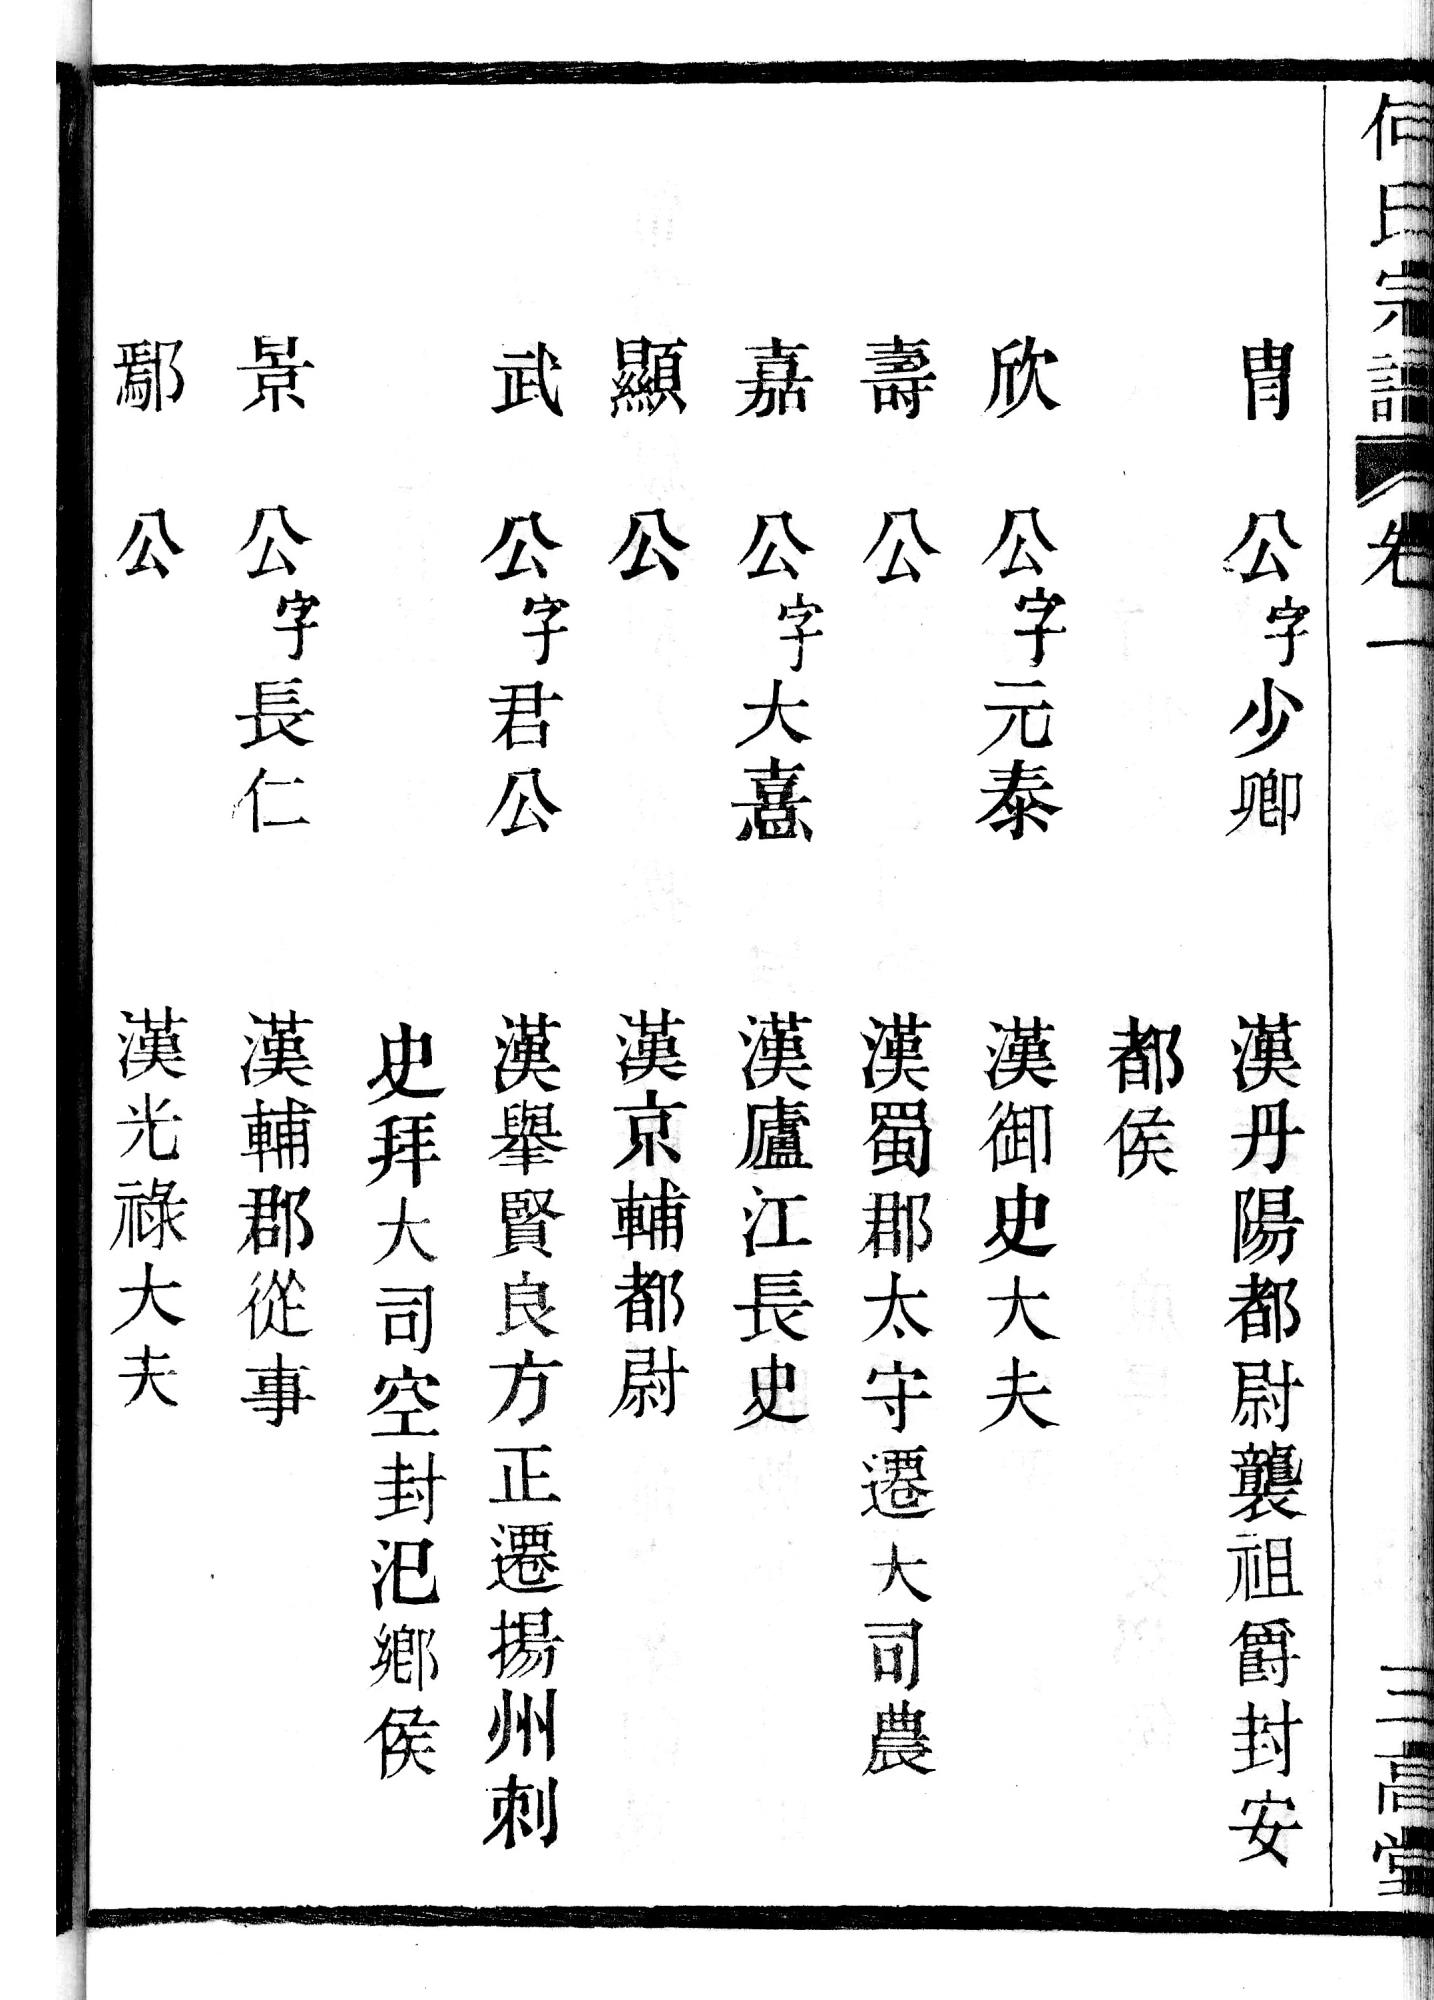 何氏宗譜 卷一 三高堂
胄 公字少卿 漢丹陽都尉襲祖爵封安
都侯
欣 公字元泰 漢御史大夫
壽 公 漢蜀郡太守遷大司農
嘉 公字大憙 漢廬江長史
顯 公 漢京輔都尉
武 公字君公 漢舉賢良方正遷揚州刺
史拜大司空封氾鄉侯
景 公字長仁 漢輔郡從事
鄢 公 漢光祿大夫